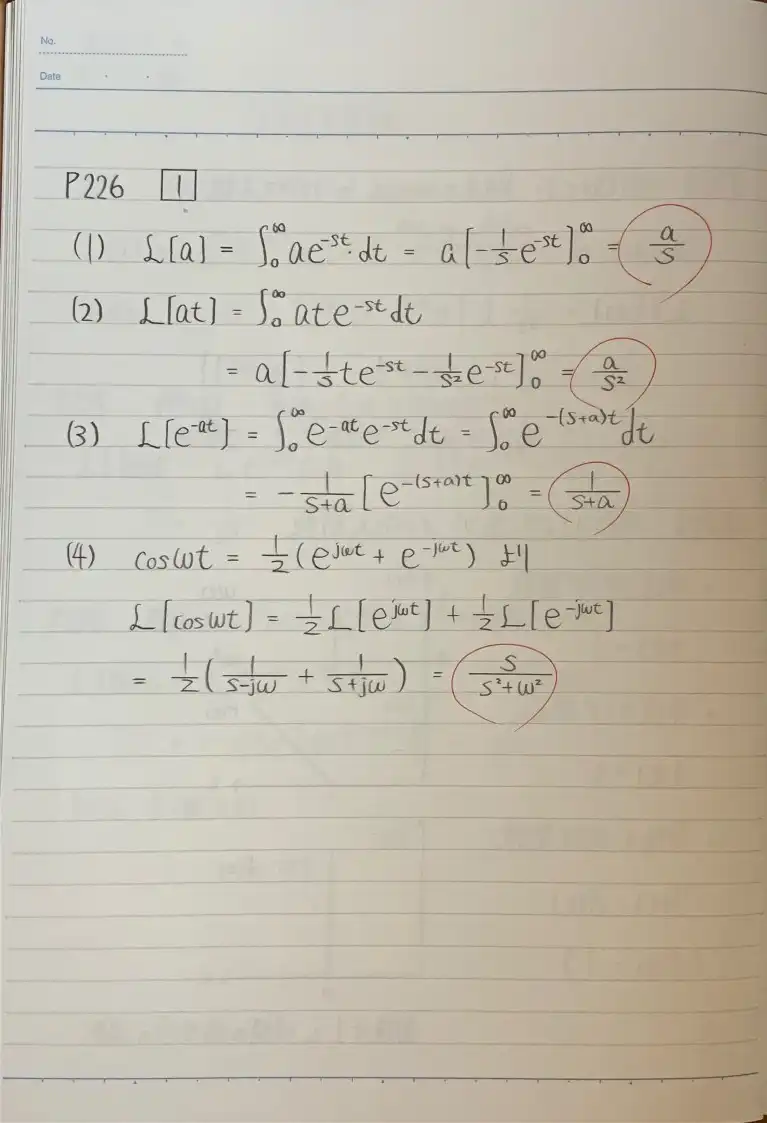 No.
Date
P226 1
(1) L[a] = ∫₀^∞ ae^{-st}·dt = a[-1/s e^{-st}]₀^∞ = a/s
(2) L[at] = ∫₀^∞ ate^{-st}dt
= a[-1/s te^{-st} - 1/s² e^{-st}]₀^∞ = a/s²
(3) L[e^{-at}] = ∫₀^∞ e^{-at}e^{-st}dt = ∫₀^∞ e^{-(s+a)t}dt
= -1/(s+a) [e^{-(s+a)t}]₀^∞ = 1/(s+a)
(4) cosωt = 1/2(e^{jωt} + e^{-jωt}) より
L[cosωt] = 1/2 L[e^{jωt}] + 1/2 L[e^{-jωt}]
= 1/2(1/(s-jω) + 1/(s+jω)) = s/(s²+ω²)